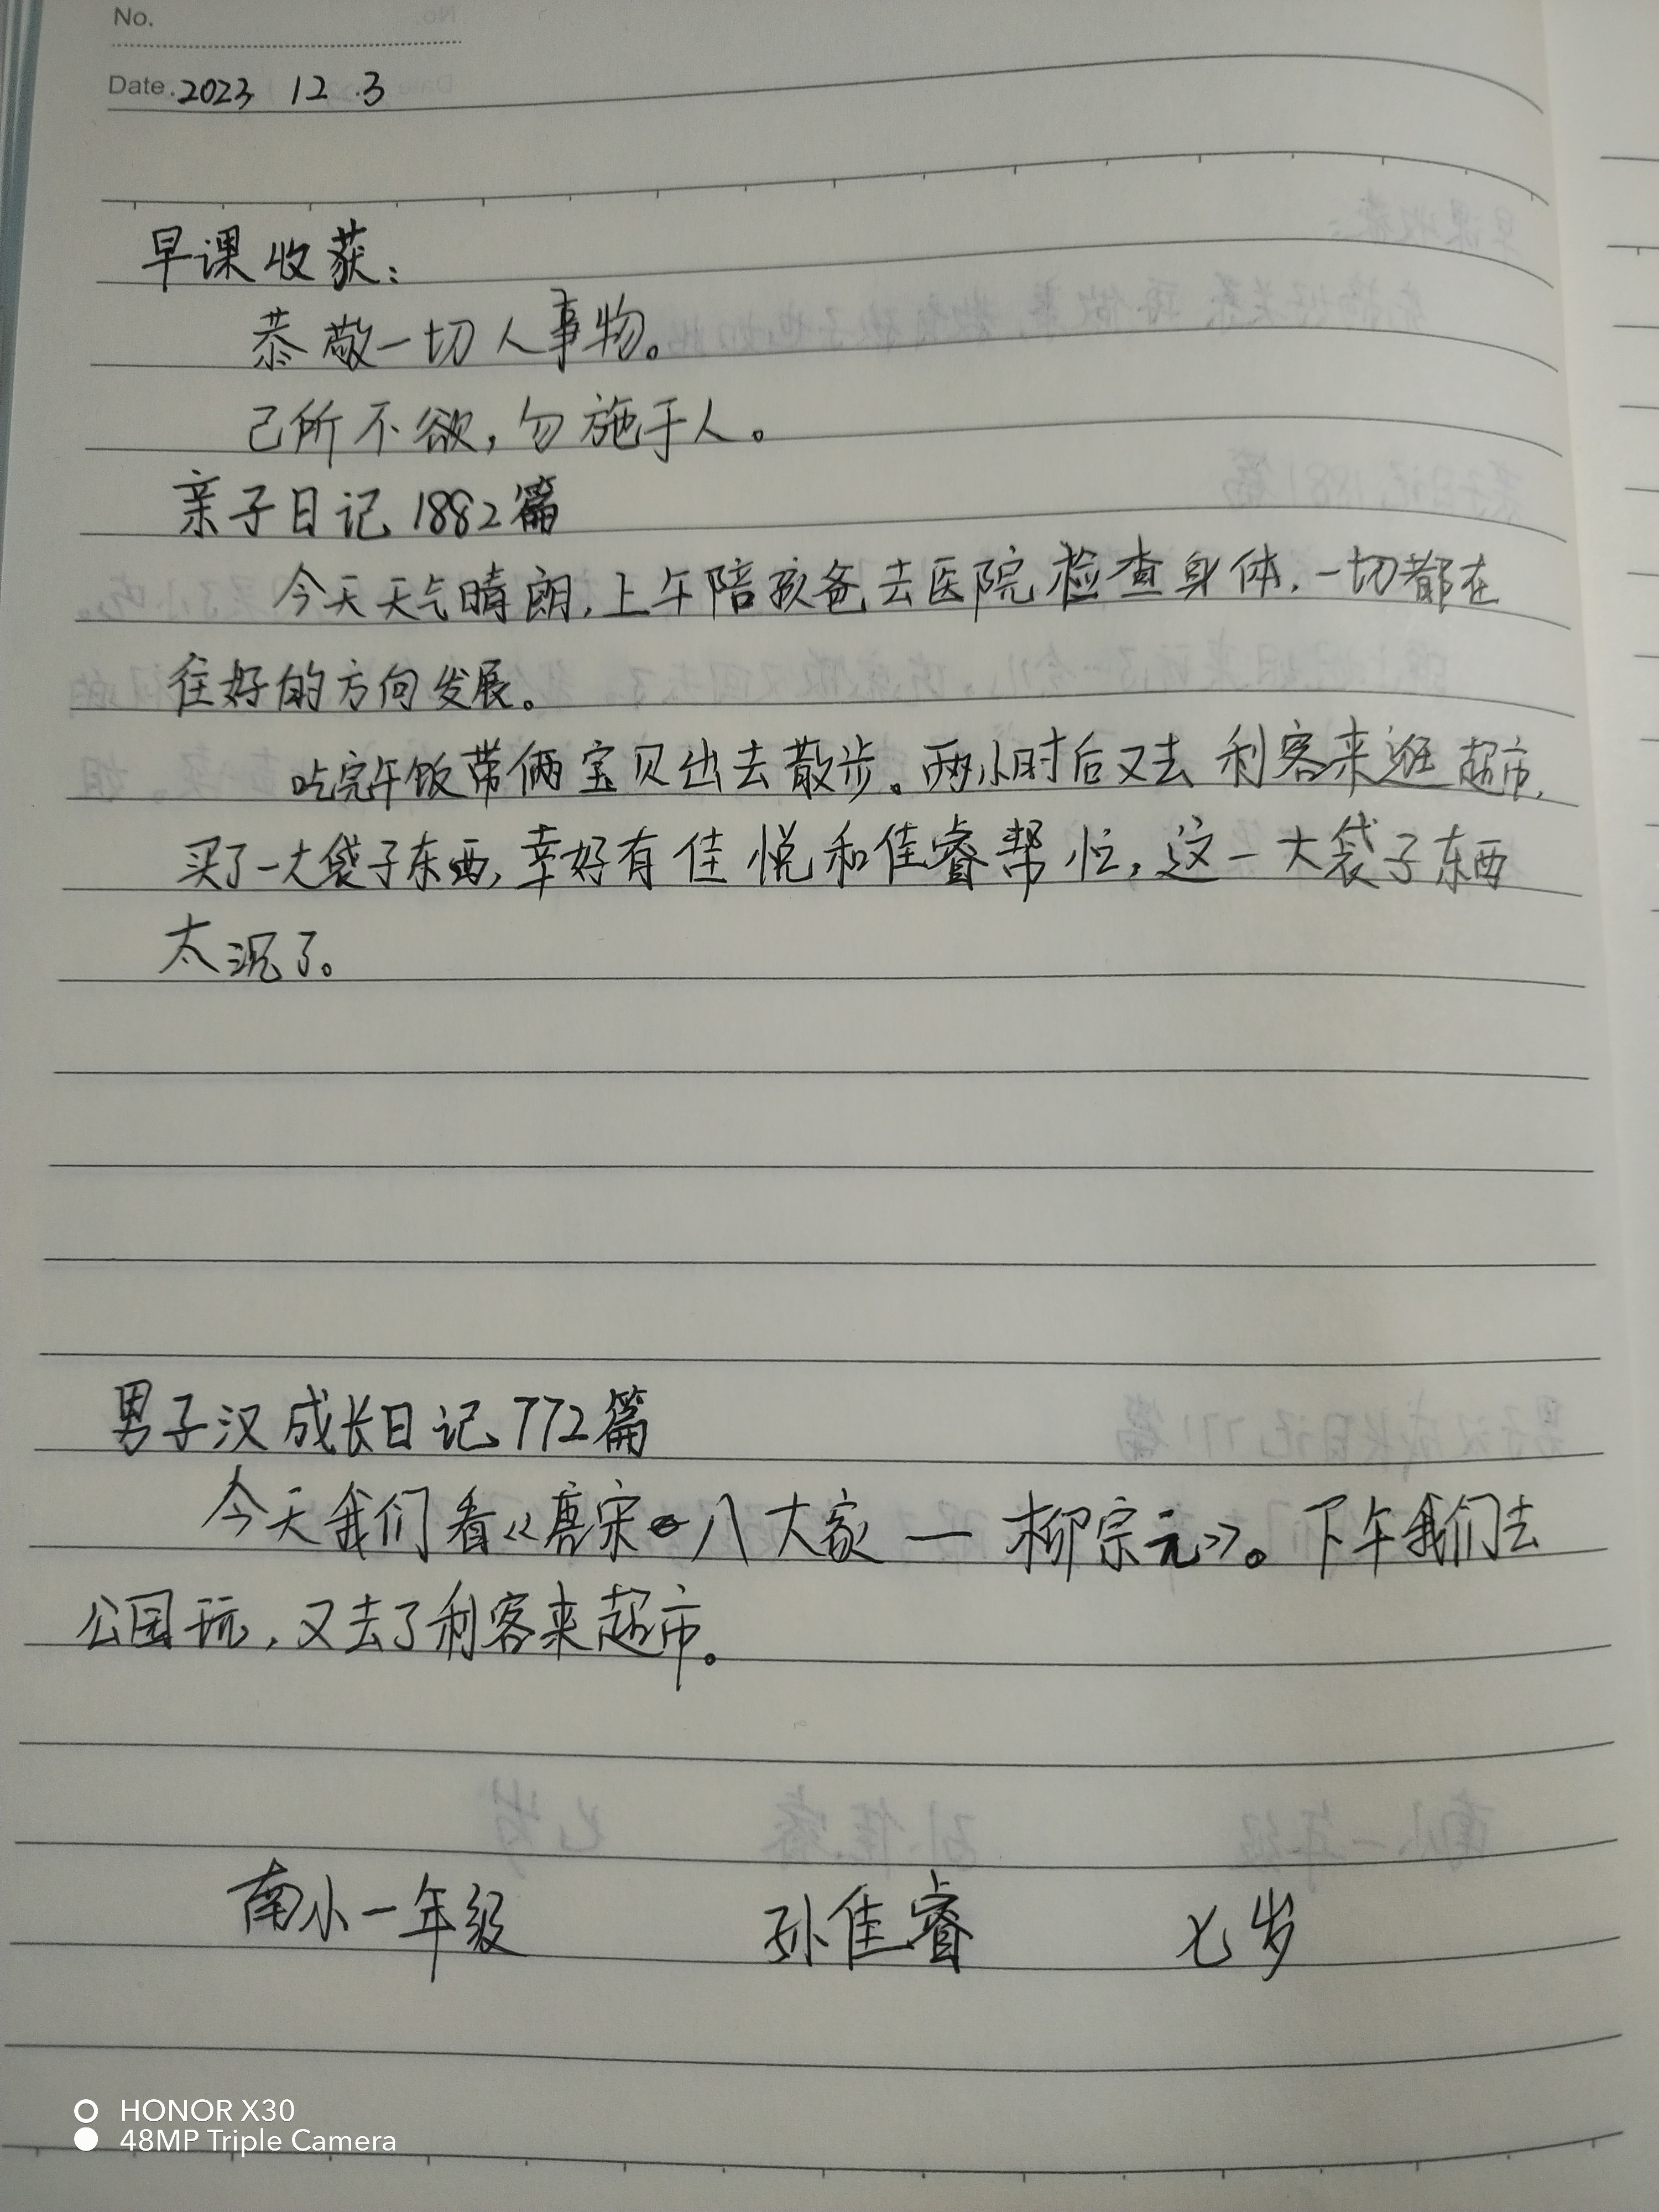 No.
Date. 2023 12 .3
早课收获：
恭敬一切人事物。
己所不欲，勿施于人。
亲子日记1882篇
今天天气晴朗，上午陪孩爸去医院检查身体，一切都在
往好的方向发展。
吃完午饭带俩宝贝出去散步。两小时后又去利客来逛超市，
买了一大袋子东西，幸好有佳悦和佳睿帮忙，这一大袋子东西
太沉了。
男子汉成长日记772篇
今天我们看《唐宋八大家—柳宗元》。下午我们去
公园玩，又去了利客来超市。
南小一年级 孙佳睿 七岁
HONOR X30
48MP Triple Camera